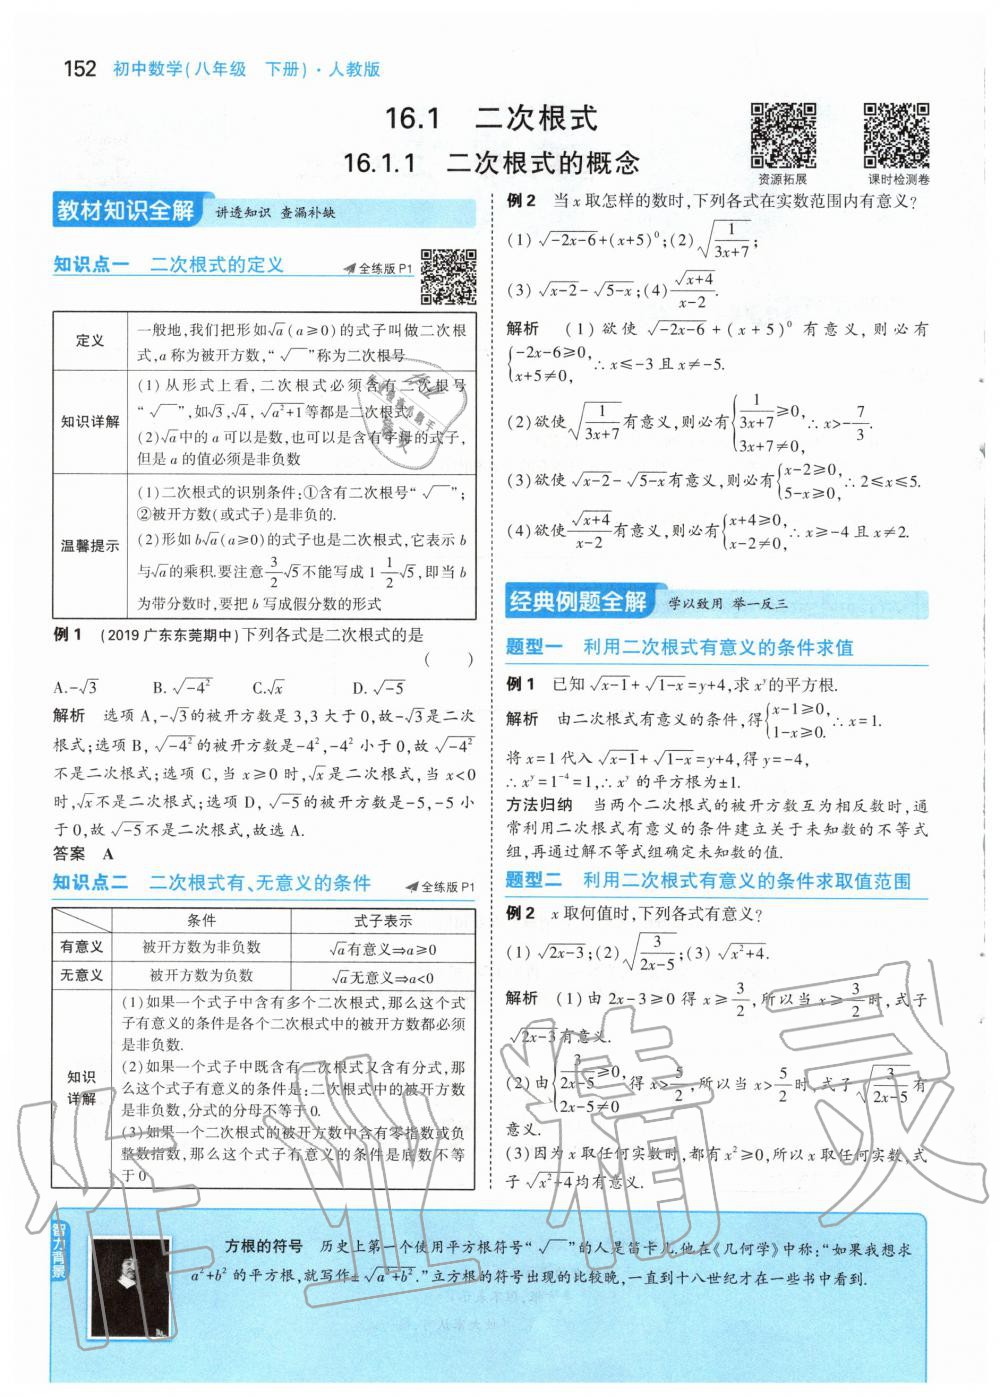 152 初中数学(八年级 下册)·人教版
16.1 二次根式
16.1.1 二次根式的概念
资源拓展
课时检测卷
教材知识全解 讲透知识 查漏补缺
知识点一 二次根式的定义 全练版P1
定义
一般地,我们把形如√a(a≥0)的式子叫做二次根
式,a称为被开方数,“√‾”称为二次根号
知识详解
(1)从形式上看,二次根式必须含有二次根号
“√‾”,如√3,√4,√(a²+1)等都是二次根式
(2)√a中的a可以是数,也可以是含有字母的式子,
但是a的值必须是非负数
温馨提示
(1)二次根式的识别条件:①含有二次根号“√‾”;
②被开方数(或式子)是非负的.
(2)形如b√a(a≥0)的式子也是二次根式,它表示b
与√a的乘积.要注意3/2√5不能写成1 1/2√5,即当b
为带分数时,要把b写成假分数的形式
例1 (2019广东东莞期中)下列各式是二次根式的是
( )
A.-√3 B.√(-4²) C.√x D.√(-5)
解析 选项A,-√3的被开方数是3,3大于0,故-√3是二次
根式;选项B,√(-4²)的被开方数是-4²,-4²小于0,故√(-4²)
不是二次根式;选项C,当x≥0时,√x是二次根式,当x<0
时,√x不是二次根式;选项D,√(-5)的被开方数是-5,-5小
于0,故√(-5)不是二次根式,故选A.
答案 A
知识点二 二次根式有、无意义的条件 全练版P1
条件 式子表示
有意义 被开方数为非负数 √a有意义⇒a≥0
无意义 被开方数为负数 √a无意义⇒a<0
知识
详解
(1)如果一个式子中含有多个二次根式,那么这个式
子有意义的条件是各个二次根式中的被开方数都必须
是非负数.
(2)如果一个式子中既含有二次根式又含有分式,那
么这个式子有意义的条件是:二次根式中的被开方数
是非负数,分式的分母不等于0.
(3)如果一个二次根式的被开方数中含有零指数或负
整数指数,那么这个式子有意义的条件是底数不等
于0
例2 当x取怎样的数时,下列各式在实数范围内有意义?
(1)√(-2x-6)+(x+5)⁰;(2)√(1/(3x+7));
(3)√(x-2)-√(5-x);(4)√(x+4)/(x-2).
解析 (1)欲使√(-2x-6)+(x+5)⁰有意义,则必有
{-2x-6≥0, x+5≠0, ∴x≤-3且x≠-5.
(2)欲使√(1/(3x+7))有意义,则必有{1/(3x+7)≥0, 3x+7≠0, ∴x>-7/3.
(3)欲使√(x-2)-√(5-x)有意义,则必有{x-2≥0, 5-x≥0, ∴2≤x≤5.
(4)欲使√(x+4)/(x-2)有意义,则必有{x+4≥0, x-2≠0, ∴x≥-4且x≠2.
经典例题全解 学以致用 举一反三
题型一 利用二次根式有意义的条件求值
例1 已知√(x-1)+√(1-x)=y+4,求xʸ的平方根.
解析 由二次根式有意义的条件,得{x-1≥0, 1-x≥0. ∴x=1.
将x=1代入√(x-1)+√(1-x)=y+4,得y=-4,
∴xʸ=1⁻⁴=1,∴xʸ的平方根为±1.
方法归纳 当两个二次根式的被开方数互为相反数时,通
常利用二次根式有意义的条件建立关于未知数的不等式
组,再通过解不等式组确定未知数的值.
题型二 利用二次根式有意义的条件求取值范围
例2 x取何值时,下列各式有意义?
(1)√(2x-3);(2)√(3/(2x-5));(3)√(x²+4).
解析 (1)由2x-3≥0得x≥3/2,所以当x≥3/2时,式子
√(2x-3)有意义.
(2)由{3/(2x-5)≥0, 2x-5≠0 得x>5/2,所以当x>5/2时,式子√(3/(2x-5))有
意义.
(3)因为x取任何实数时,都有x²≥0,所以x取任何实数,式
子√(x²+4)均有意义.
作业精灵
智力背景
方根的符号 历史上第一个使用平方根符号“√‾”的人是笛卡儿.他在《几何学》中称:“如果我想求
a²+b²的平方根,就写作±√(a²+b²).”立方根的符号出现的比较晚,一直到十八世纪才在一些书中看到.